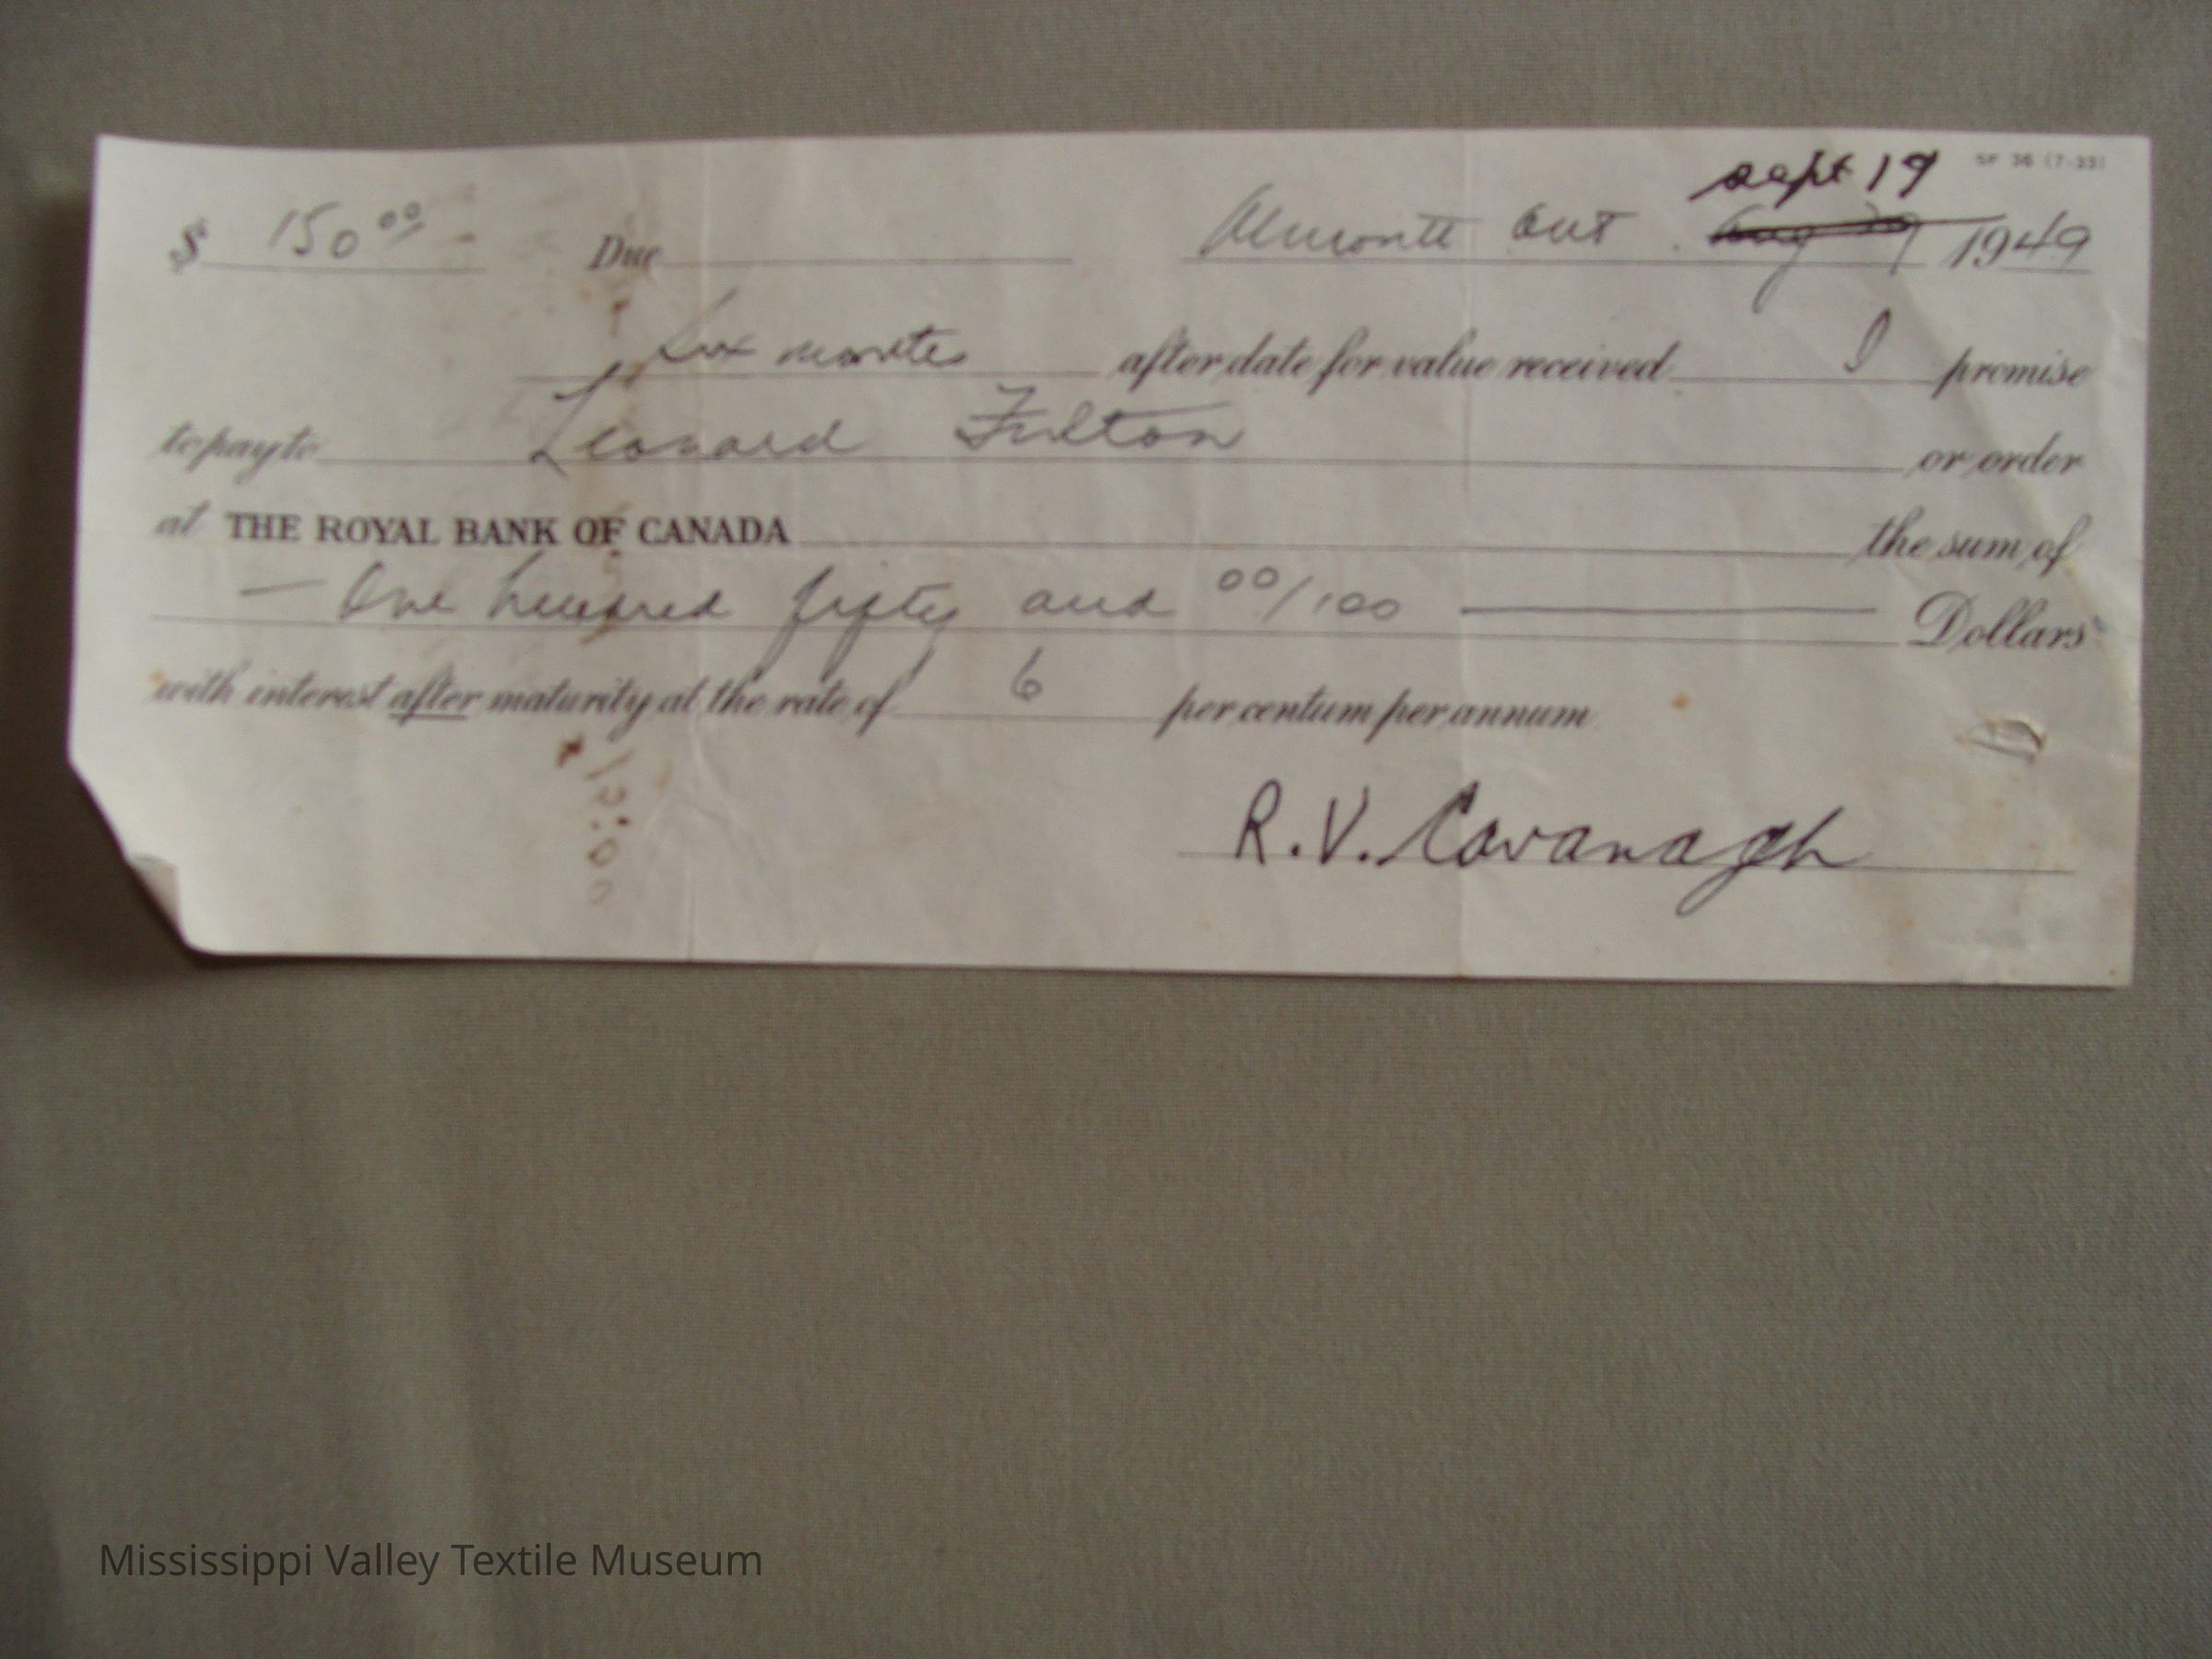 sept 19 SF 36 (7-33)
$ 150 00 Due Almonte Ont. Aug 29 1949
Six months after date for value received I promise
to pay to Leonard Fulton or order
at THE ROYAL BANK OF CANADA the sum of
— One hundred fifty and 00/100 — Dollars
with interest after maturity at the rate of 6 per centum per annum
R.V. Cavanagh
Mississippi Valley Textile Museum